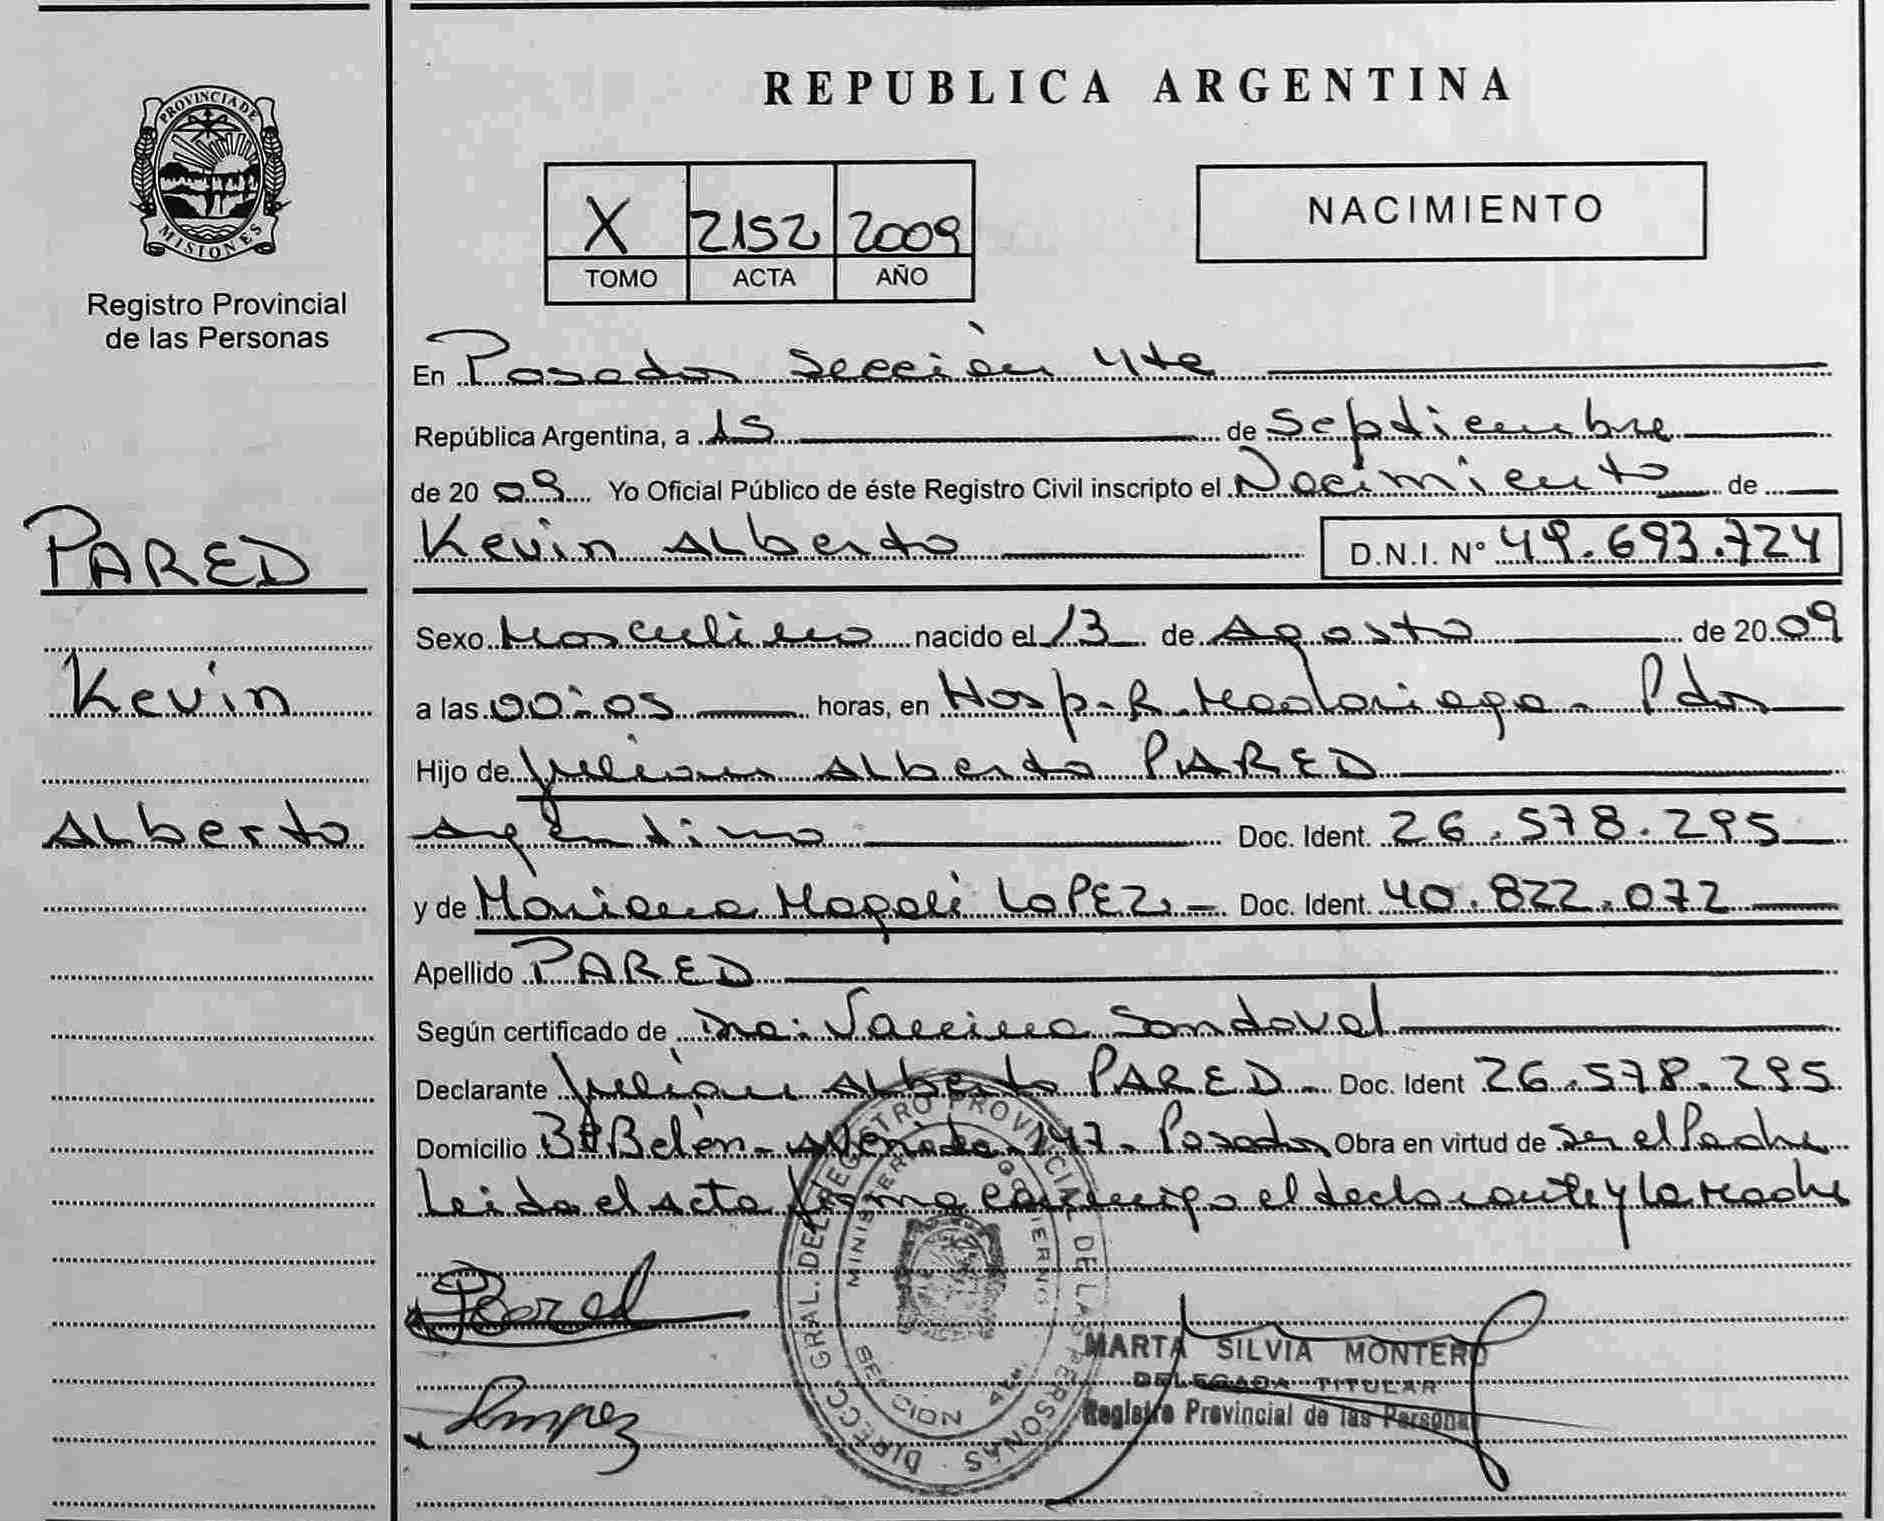 PROVINCIA DE
MISIONES
Registro Provincial
de las Personas
PARED
Kevin
Alberto
REPUBLICA ARGENTINA
X 2152 2009
TOMO ACTA AÑO
NACIMIENTO
En Posadas Sección 4ta
República Argentina, a 15 de Septiembre
de 20 09 Yo Oficial Público de éste Registro Civil inscripto el Nacimiento de
Kevin Alberto D.N.I. Nº 49.693.724
Sexo Masculino nacido el 13 de Agosto de 20 09
a las 00:05 horas, en Hosp. R. Madariaga - Pdas
Hijo de Julian Alberto PARED
Argentino Doc. Ident. 26.578.295
y de Mariana Magali LOPEZ - Doc. Ident. 40.822.072
Apellido PARED
Según certificado de Dra. Sandoval
Declarante Julián Alberto PARED - Doc. Ident 26.578.295
Domicilio Bº Belén - Avenida 147 - Posadas Obra en virtud de Ser el Padre
Leida el Acta firma conmigo el declarante y la Madre
Pared
DIRECC. GRAL. DEL REGISTRO PROVINCIAL DE LAS PERSONAS
MINISTERIO GOBIERNO
SECCION 4ta.
MARTA SILVIA MONTERO
DELEGADA TITULAR
Registro Provincial de las Personas
Lopez